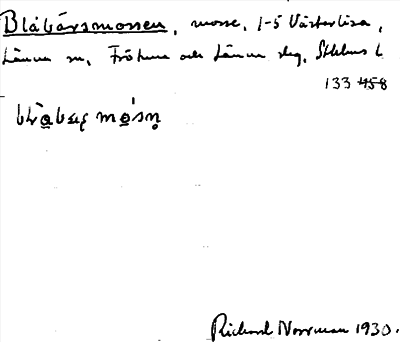 Blåbärsmossen, mosse, 1-5 Västerlisa,
Länna sn, Frötuna och Länna slg, Sthlms l.
133 458
Richard Norrman 1930.